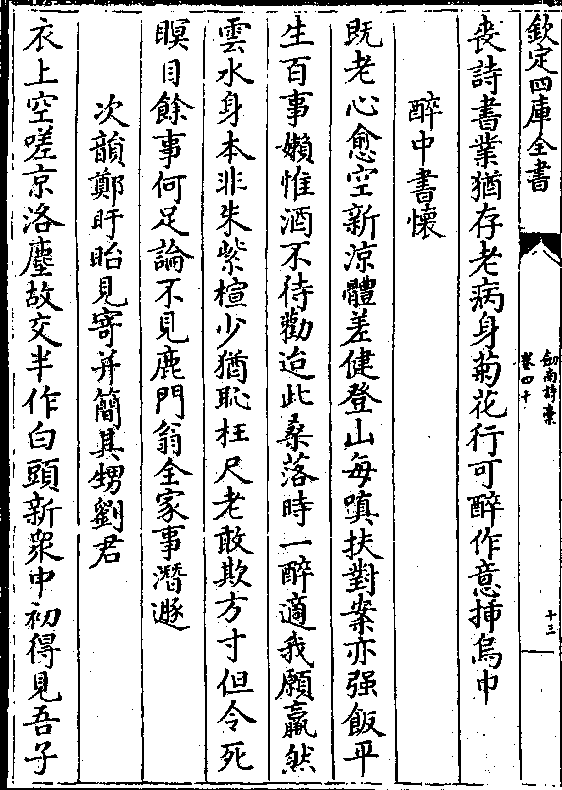 欽定四庫全書
劍南詩藁
卷四十
十三
喪詩書業猶存老病身菊花行可醉作意挿烏巾
醉中書懷
既老心愈空新涼體差健登山每嗔扶對案亦强飯平
生百事嬾惟酒不待勸迨此桑落時一醉適我願羸然
雲水身本非朱紫楦少猶恥枉尺老敢欺方寸但令死
瞑目餘事何足論不見鹿門翁全家事潛遯
次韻鄭盱眙見寄并簡其甥劉君
衣上空嗟京洛塵故交半作白頭新衆中初得見吾子